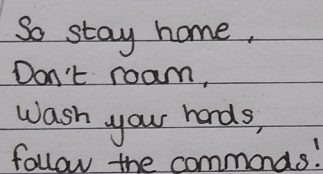 So stay home,
Don't roam,
Wash your hands,
follow the commands!